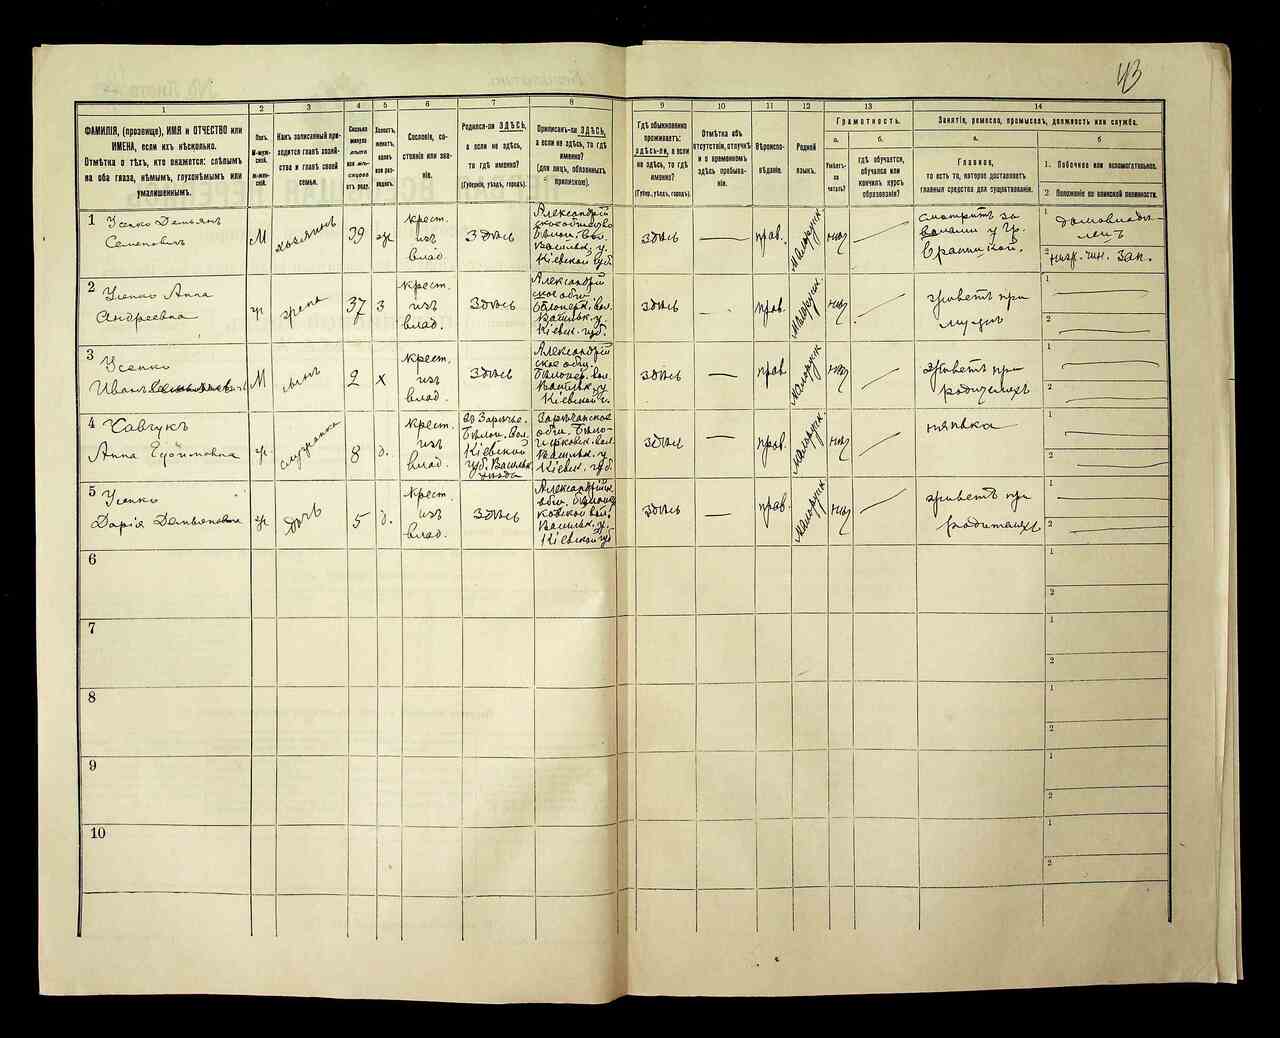 43
1
2
3
4
5
6
7
8
9
10
11
12
13
14
ФАМИЛІЯ, (прозвище), ИМЯ и ОТЧЕСТВО или
ИМЕНА, если ихъ нѣсколько.
Отмѣтка о тѣхъ, кто окажется: слѣпымъ
на оба глаза, нѣмымъ, глухонѣмымъ или
умалишеннымъ.
Полъ.
М-муж-
ской.
Ж-жен-
скій.
Какъ записанный при-
ходится главѣ хозяй-
ства и главѣ своей
семьи.
Сколько
минуло
лѣтъ
или мѣ-
сяцевъ
отъ роду.
Холостъ,
женатъ,
вдовъ
или раз-
веденъ.
Сословіе, со-
стояніе или зва-
ніе.
Родился-ли ЗДѢСЬ,
а если не здѣсь,
то гдѣ именно?
(Губернія, уѣздъ, городъ).
Приписанъ-ли ЗДѢСЬ,
а если не здѣсь, то гдѣ
именно?
(для лицъ, обязанныхъ
припискою).
Гдѣ обыкновенно
проживаетъ:
здѣсь-ли, а если
не здѣсь, то гдѣ
именно?
(Губер., уѣздъ, городъ).
Отмѣтка объ
отсутствіи, отлучкѣ
и о временномъ
здѣсь пребыва-
ніи.
Вѣроиспо-
вѣданіе.
Родной
языкъ.
Грамотность.
а.
б.
Умѣетъ-
ли
читать?
гдѣ обучается,
обучался или
кончилъ курсъ
образованія?
Занятіе, ремесло, промыселъ, должность или служба.
а.
б
Главное,
то есть то, которое доставляетъ
главныя средства для существованія.
1. Побочное или вспомогательное.
2 Положеніе по воинской повинности.
1 Усенко Демьянъ
Семеновичъ
М
хозяинъ
39
ж
крест.
изъ
влад.
Здѣсь
Александрій
ское общество
Бѣлоц. вол.
Васильк. у.
Кіевской губ.
здѣсь
—
прав.
малорусск
смотритъ за
волами у Гр.
Браницкой.
1
домовладѣ-
лецъ
2
ниж. чин. зап.
2 Усенко Анна
Андреевна
ж
жена
37
з
крест.
изъ
влад.
Здѣсь
Александрій
ское общ.
Бѣлоцерк. вол.
Васильк. у.
Кіевск. губ.
здѣсь
прав.
малорусск
живетъ при
мужѣ
1
2
3 Усенко
Иванъ
М
сынъ
2
х
крест.
изъ
влад.
Здѣсь
Александрій
ское общ.
Бѣлоцер. вол.
Васильк. у
Кіевской г.
здѣсь
—
прав
малорусск
живетъ при
родителяхъ
1
2
4 Савчукъ
Анна Ефимовна
ж
служанка
8
д.
крест.
изъ
влад.
въ Зарѣчье.
Бѣлоц. вол.
Кіевской
губ. Васильк.
уѣзда
Зарѣчанское
общ. Бѣло-
церковск. вол.
Васильк. у
Кіевск. губ.
здѣсь
—
прав.
малорусск
нянька
1
2
5 Усенко
Дарія Демьяновна
ж
дочь
5
д.
крест.
изъ
влад.
Здѣсь
Александрійск.
общ. Бѣлоцер
ковской вол.
Васильк. у.
Кіевской губ
здѣсь
—
прав.
малорусск
живетъ при
родителяхъ
1
2
6
1
2
7
1
2
8
1
2
9
1
2
10
1
2